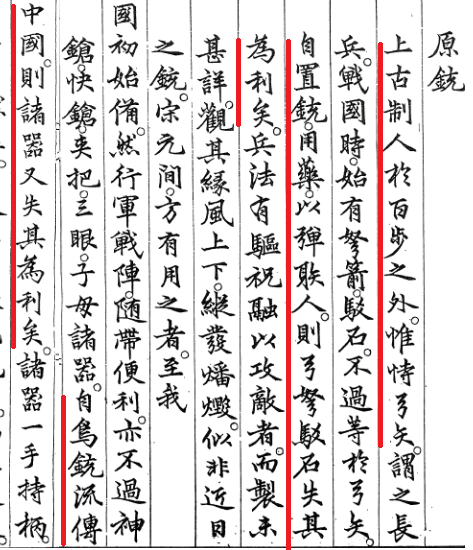 原銃
上古制人於百步之外。惟恃弓矢。謂之長
兵。戰國時。始有弩箭駁石。不過等於弓矢。
自置銃。用藥。以彈斃人。則弓弩駁石失其
為利矣。兵法有驅祝融以攻敵者。而製未
甚詳。觀其緣風上下。縱發燔燬。似非近日
之銃。宋元間。方有用之者。至我
國初始備。然行軍戰陣。隨帶便利。亦不過神
鎗快鎗。夾把三眼。子母諸器。自鳥銃流傳
中國。則諸器又失其為利矣。諸器一手持柄。